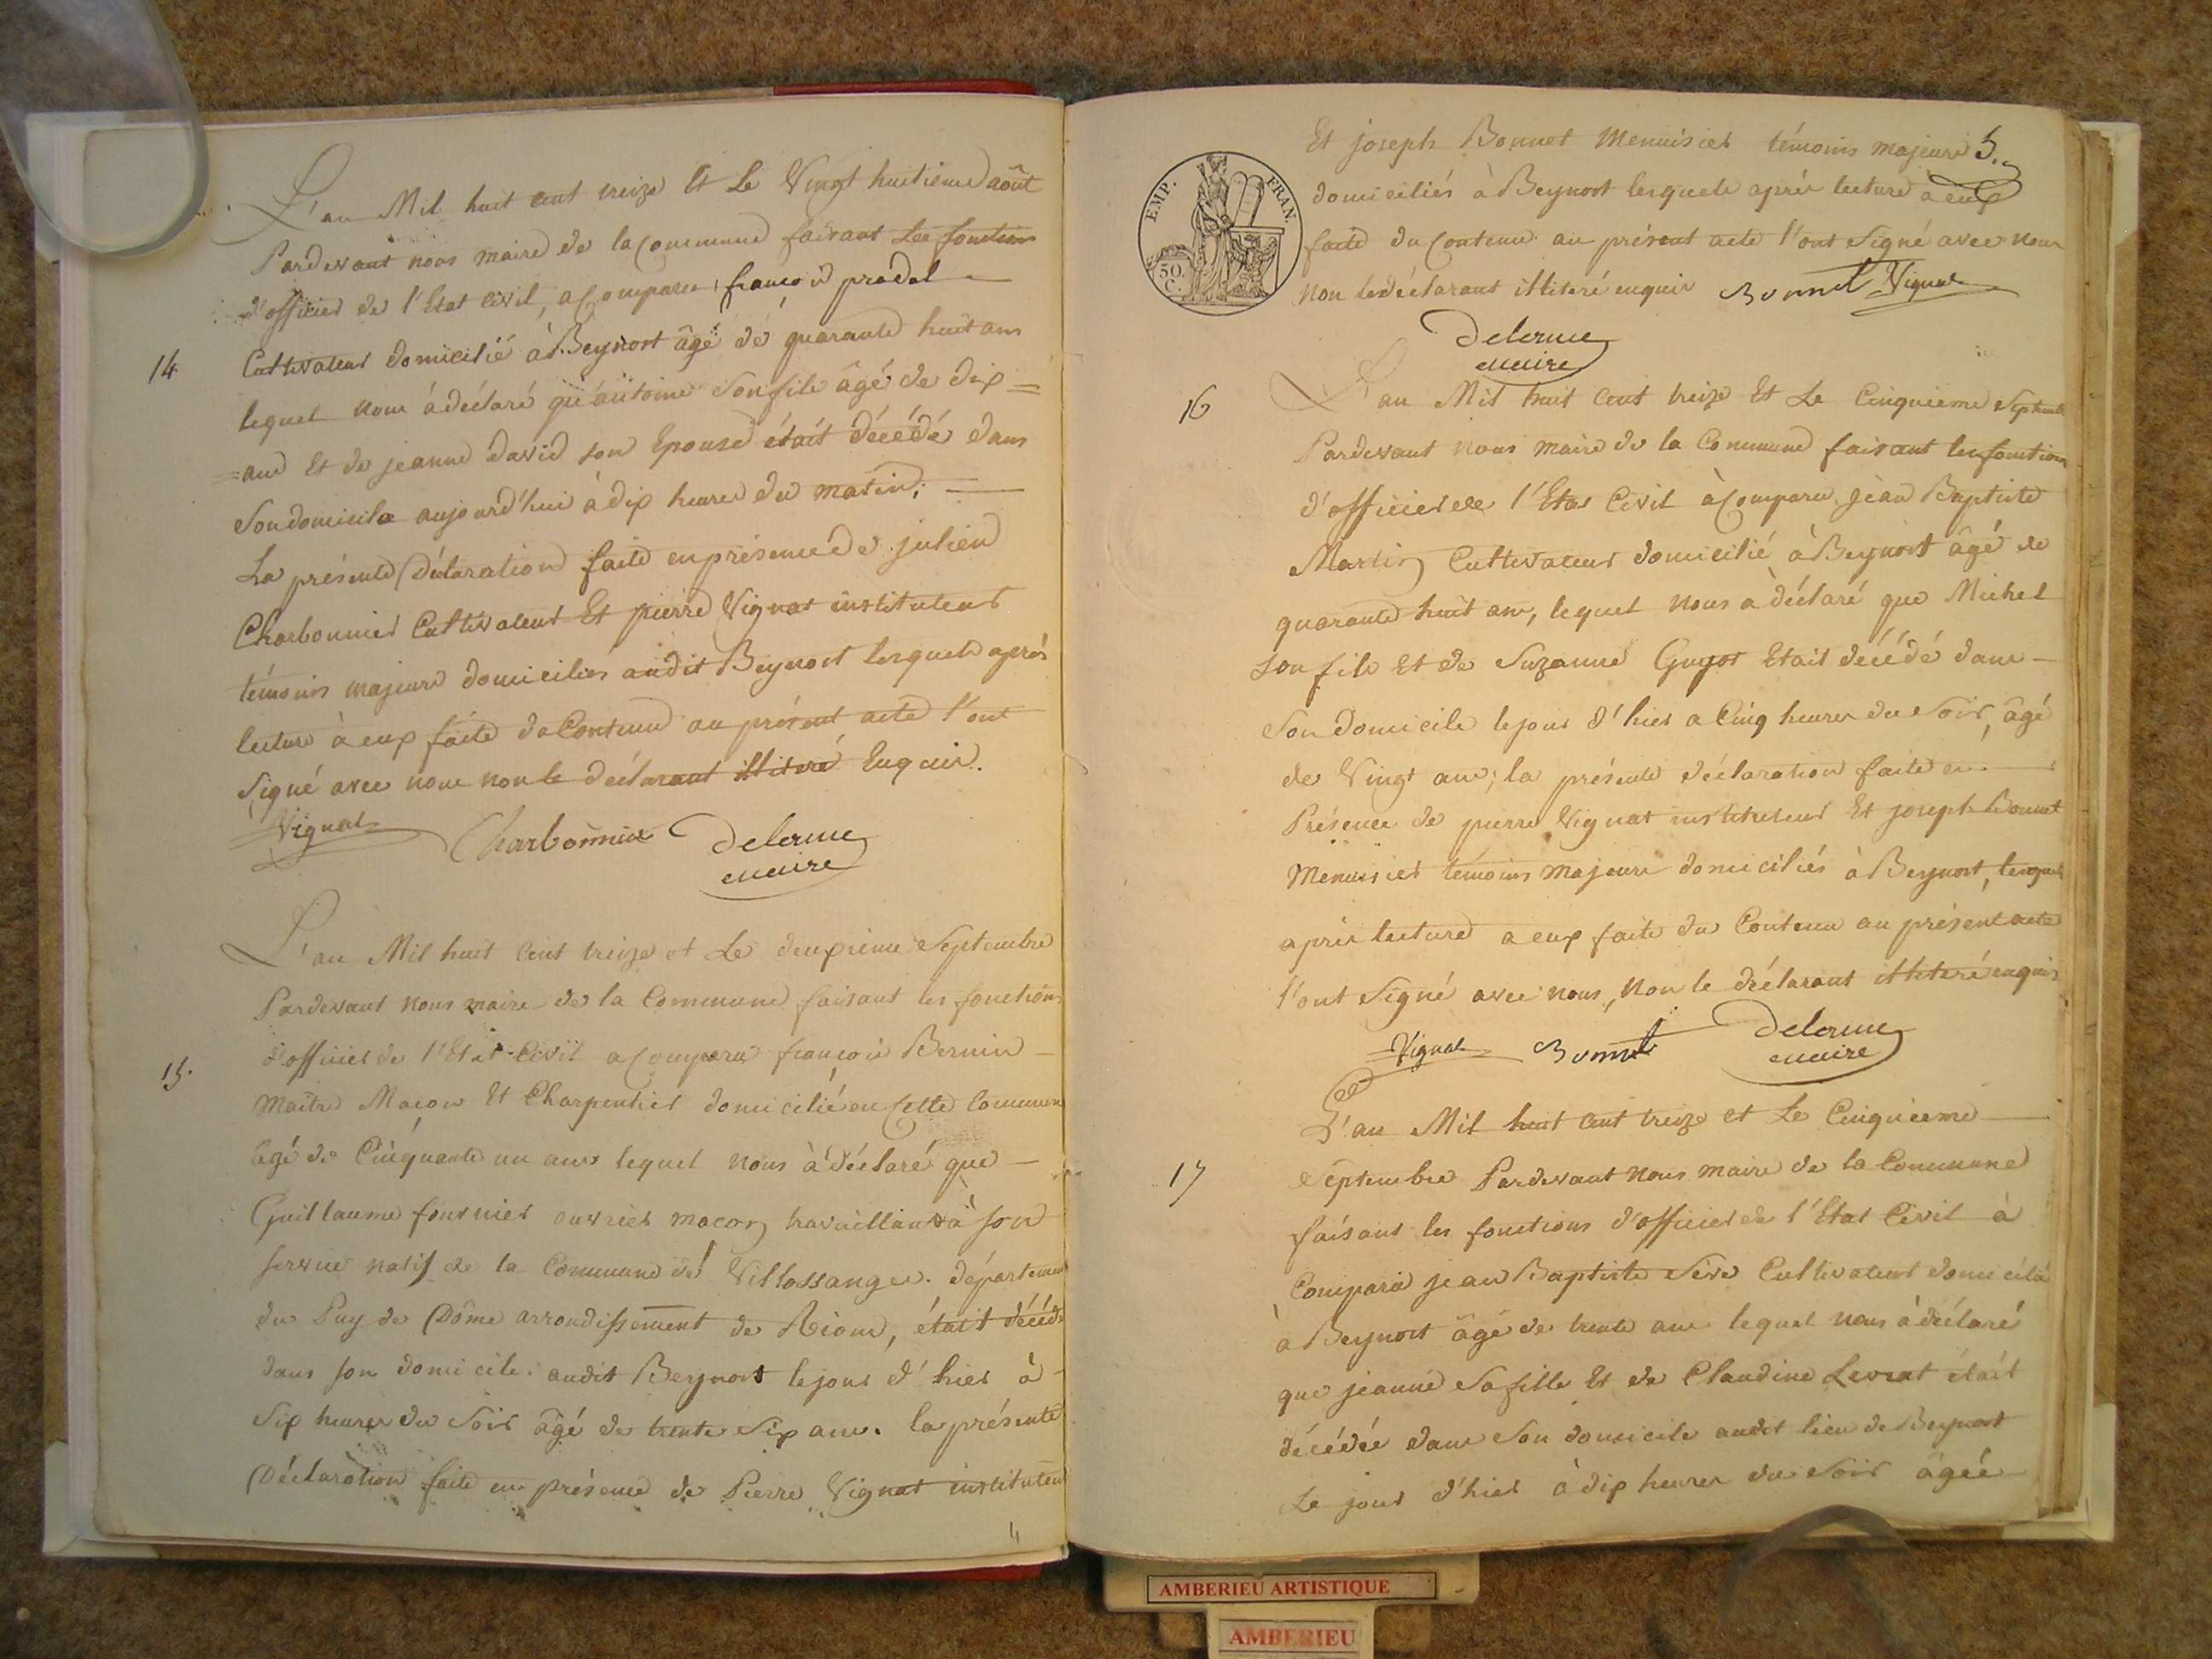 L'an Mil huit cent treize et Le Vingt huitieme août
Pardevant nous maire de la Commune faisant les fonctions
d'officier de l'Etat civil, a Comparu, françois pradel
14 Cultivateur domicilié à Beynost âgé de quarante huit ans
lequel nous à déclaré qu'antoine Son fils âgé de dix=
=ans Et de jeanne david son Epouse était décédé dans
Son domicile aujourd'hui à dix heures du matin;
La présente Déclaration faite en présence de julien
Charbonnier Cultivateur Et pierre Vignat instituteur
témoins majeurs domiciliés audit Beynost lesquels après
lecture à eux faite du Contenu au présent acte l'ont
Signé avec nous non le déclarant illiteré Enquis.
Vignat Charbonnier Delorme
maire
L'an Mil huit Cent treize et Le deuxieme Septembre
Pardevant nous maire de la Commune faisant les fonctions
d'officier de l'Etat Civil a Comparu françois Bernin
15. Maitre Maçon Et Charpentier domicilié en Cette Commune
âgé de Cinquante un ans lequel nous à déclaré que
Guillaume fournier ouvrier maçon travaillant à son
service natif de la Commune de Villossanges. département
du Puy de Dôme arrondissement de Riom, était décédé
dans son domicile. audit Beynost le jour d'hier à
Six heures du Soir âgé de trente Six ans. la présente
Déclaration faite en présence de Pierre Vignat instituteur
4
Et joseph Bonnet Menuisier témoins majeurs 5.
EMP. FRAN.
50. C.
domiciliés à Beynost lesquels après lecture à eux
faite du Contenu au présent acte l'ont Signé avec nous
non le déclarant illiteré enquis Bonnet Vignat
Delorme
maire
16 L'an Mil huit Cent treize Et Le Cinquieme Septembre
Pardevant nous maire de la Commune faisant les fonctions
d'officier de l'Etat Civil à Comparu jean Baptiste
Martin Cultivateur domicilié à Beynost âgé de
quarante huit ans, lequel nous a déclaré que Michel
son fils Et de Suzanne Guyot Etait décédé dans
Son domicile le jour d'hier a Cinq heures du Soir, âgé
de Vingt ans; la présente déclaration faite en
Présence de pierre Vignat instituteur Et joseph Bonnet
Menuisier témoins majeurs domiciliés à Beynost, lesquels
après lecture a eux faite du Contenu au présent acte
l'ont Signé avec nous, non le déclarant illiteré enquis
Vignat Bonnet Delorme
maire
L'an Mil huit cent treize et Le Cinquieme
17 Septembre Pardevant nous maire de la Commune
faisant les fonctions d'officier de l'Etat Civil à
Comparu jean Baptiste Sève Cultivateur domicilié
à Beynost âgé de trente ans lequel nous à déclaré
que jeanne Sa fille Et de Claudine Levrat était
décédée dans Son domicile audit lieu de Beynost
Le jour d'hier à dix heures du Soir âgée
AMBERIEU ARTISTIQUE
AMBERIEU